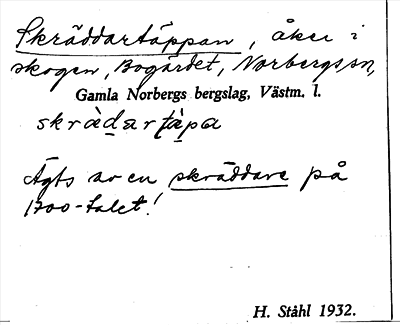 Skräddartäppan, åker i
skogen, Bogärdet, Norbergssn,
Gamla Norbergs bergslag, Västm. l.
skràdartä̀pa
Ägts av en skräddare på
1700-talet!
H. Ståhl 1932.